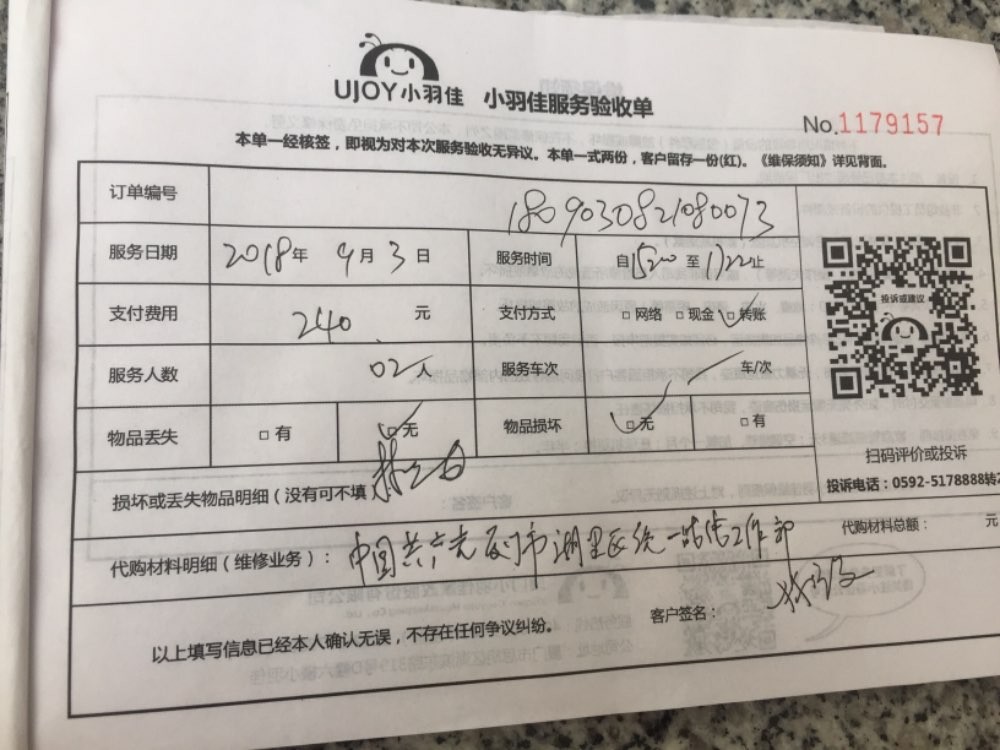 UJOY小羽佳 小羽佳服务验收单
No.1179157
本单一经核签，即视为对本次服务验收无异议。本单一式两份，客户留存一份(红)。《维保须知》详见背面。
订单编号 180903082108007３
服务日期 2018年 9月 3日 服务时间 自15:00至17:22止
支付费用 240 元 支付方式 □网络 □现金 □转账
服务人数 02人 服务车次 车/次
物品丢失 □有 □无 物品损坏 □无 □有
投诉或建议
扫码评价或投诉
投诉电话：0592-5178888转2
损坏或丢失物品明细（没有可不填
代购材料明细（维修业务）： 中国共产党厦门市湖里区统一战线工作部 代购材料总额： 元
以上填写信息已经本人确认无误，不存在任何争议纠纷。 客户签名：